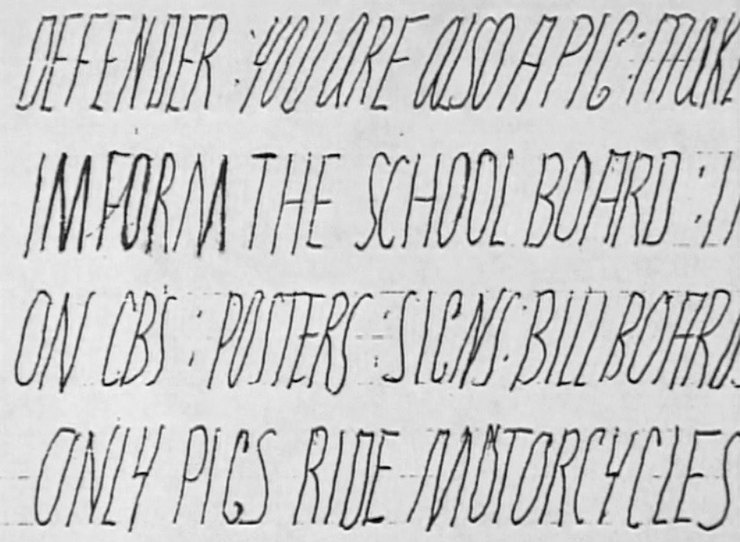 DEFENDER : YOU ARE alSO A PIG : MAKE
IMFORM THE SCHOOL BOARD :
ON CBS : POSTERS : SIGNS : BILLBOARDS
ONLY PIGS RIDE MOTORCYCLES